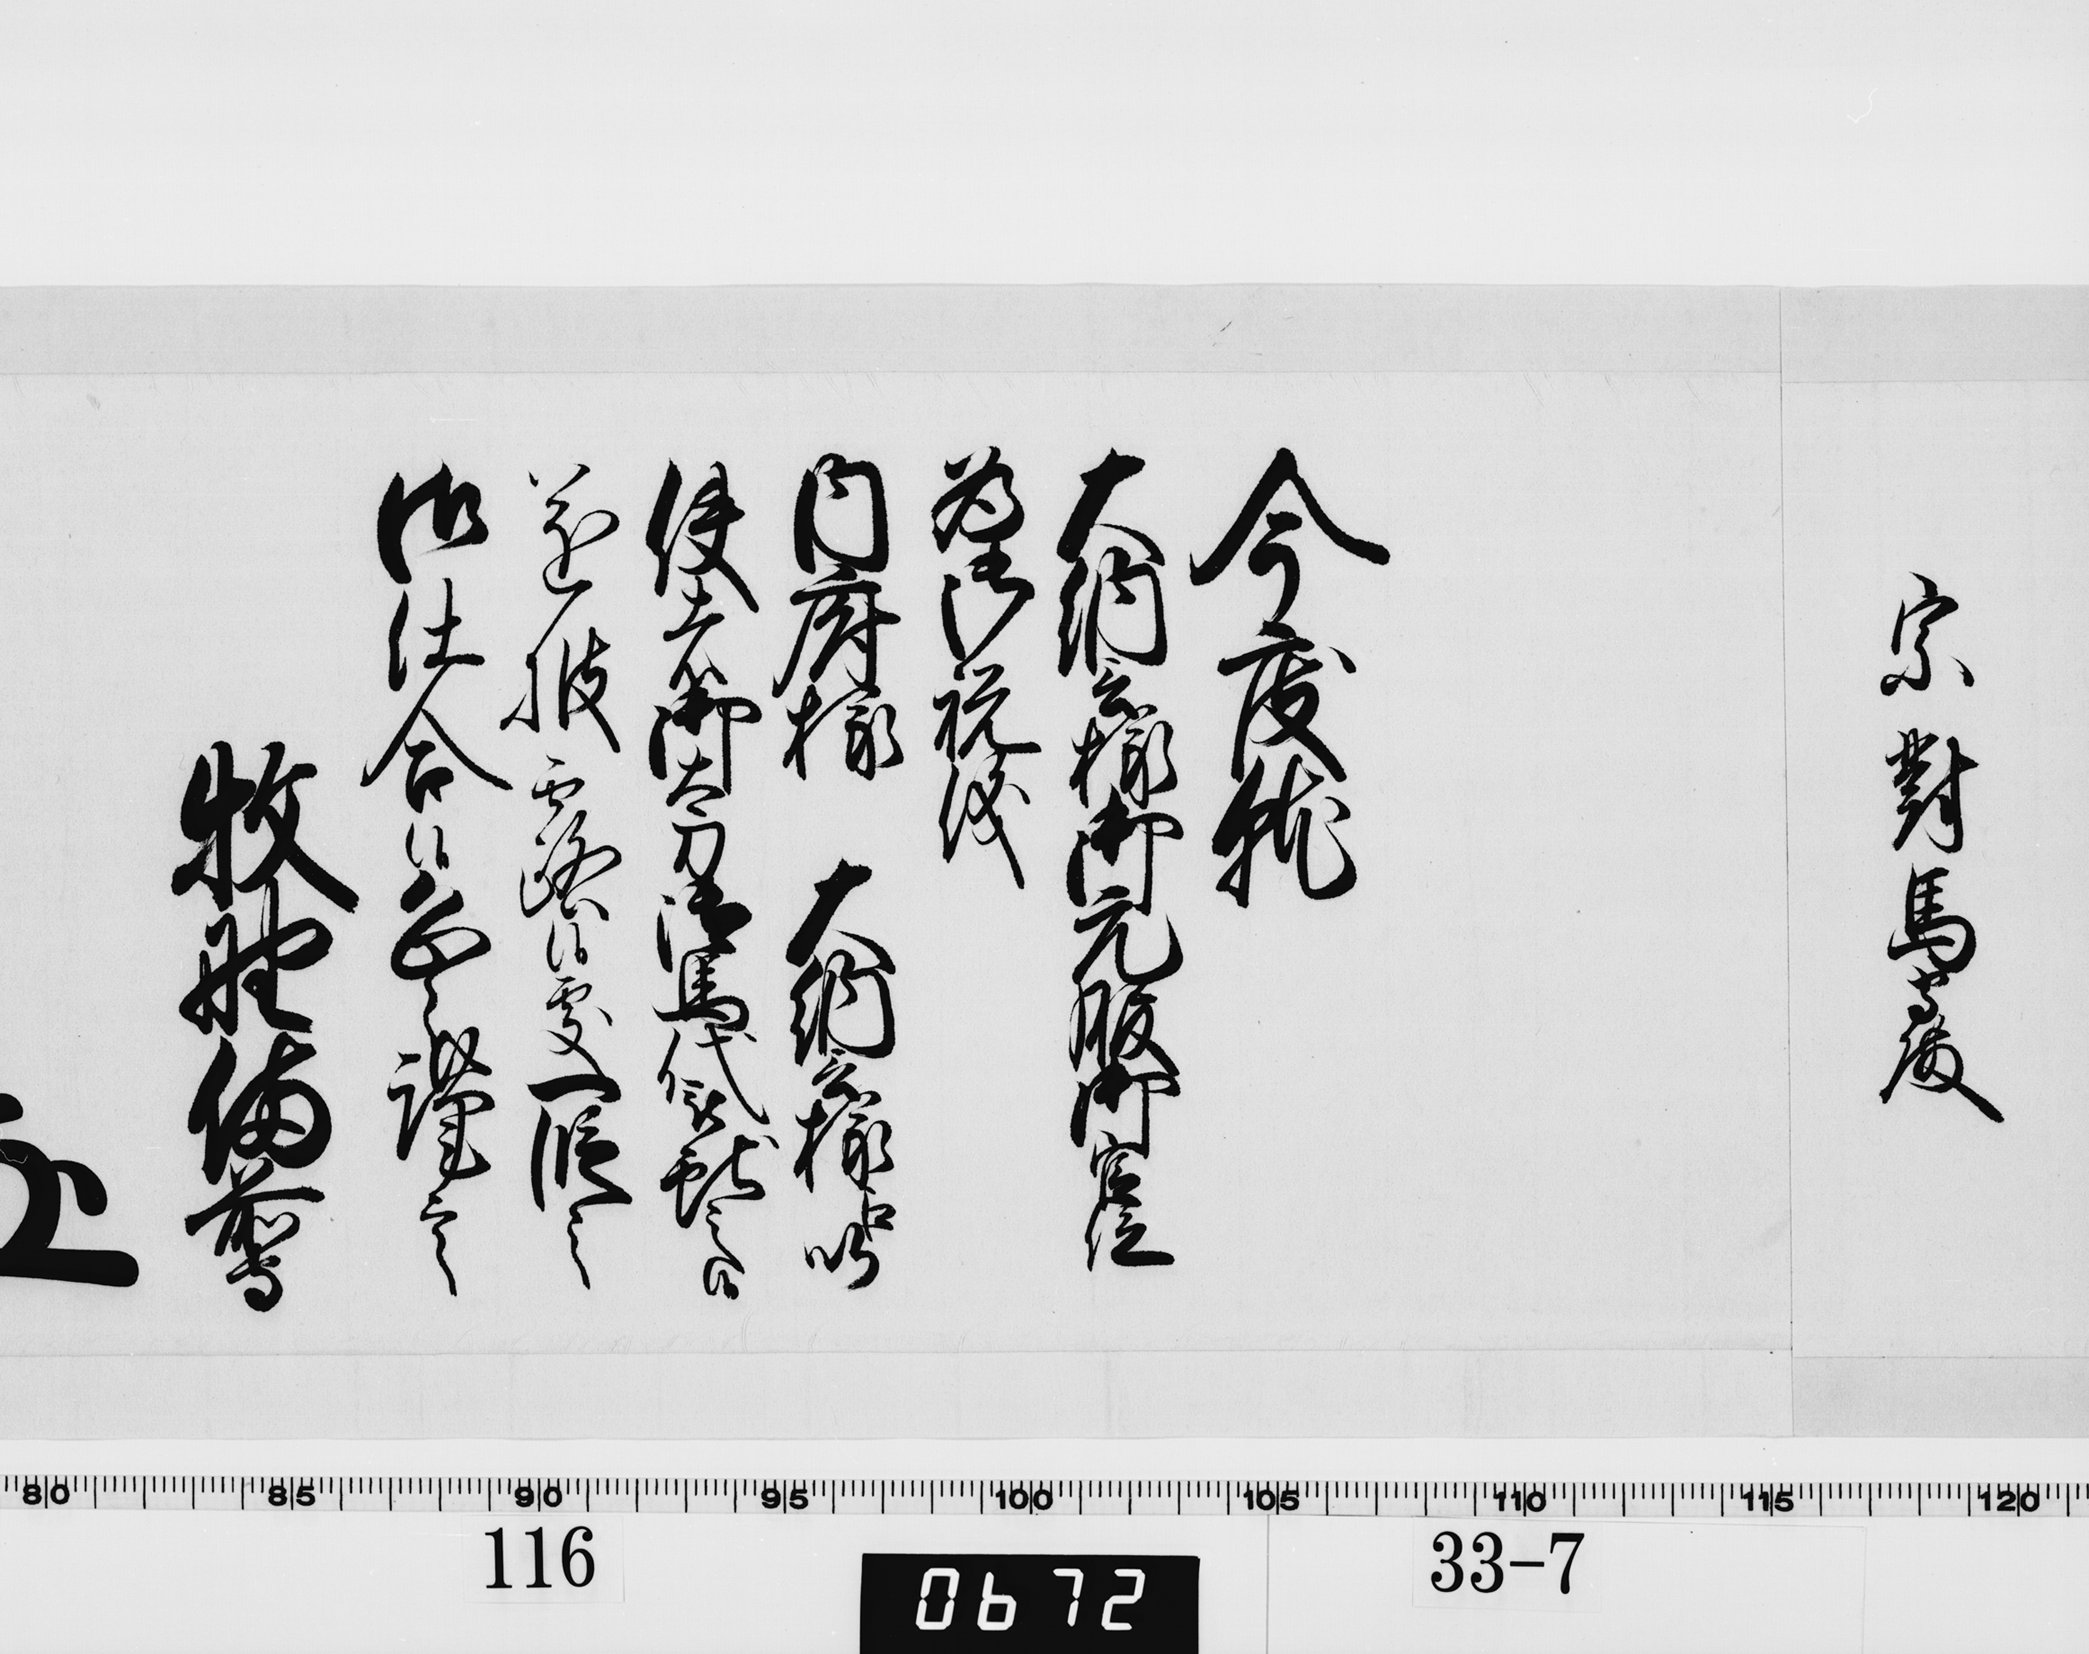 宗對馬守殿
今度就
大納言様御元服御官位
為御祝儀
内府様 大納言様江以
使者御太刀御馬代被献之候
遂披露候處一段之
御仕合候恐々謹言
牧野備前守
80 85 90 95 100 105 110 115 120
116 33-7
0672